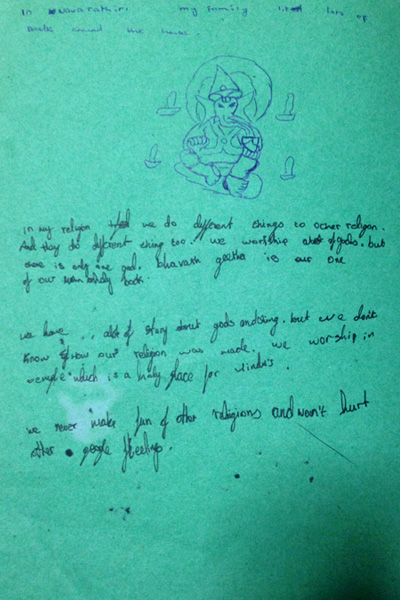 In Navarathiri my family lited lots of
candle around the house.
in my religon we do different things to other religon.
And they do different thing too. we worship alot of gods. but
there is only one god. bhavath geetha is our one
of our holy book.
we have alot of story about gods and sing. but we don't
know how our religion was made. we worship in
temple which is a holy place for Hindu's.
we never make fun of other religions and won't hurt
other people feelings.